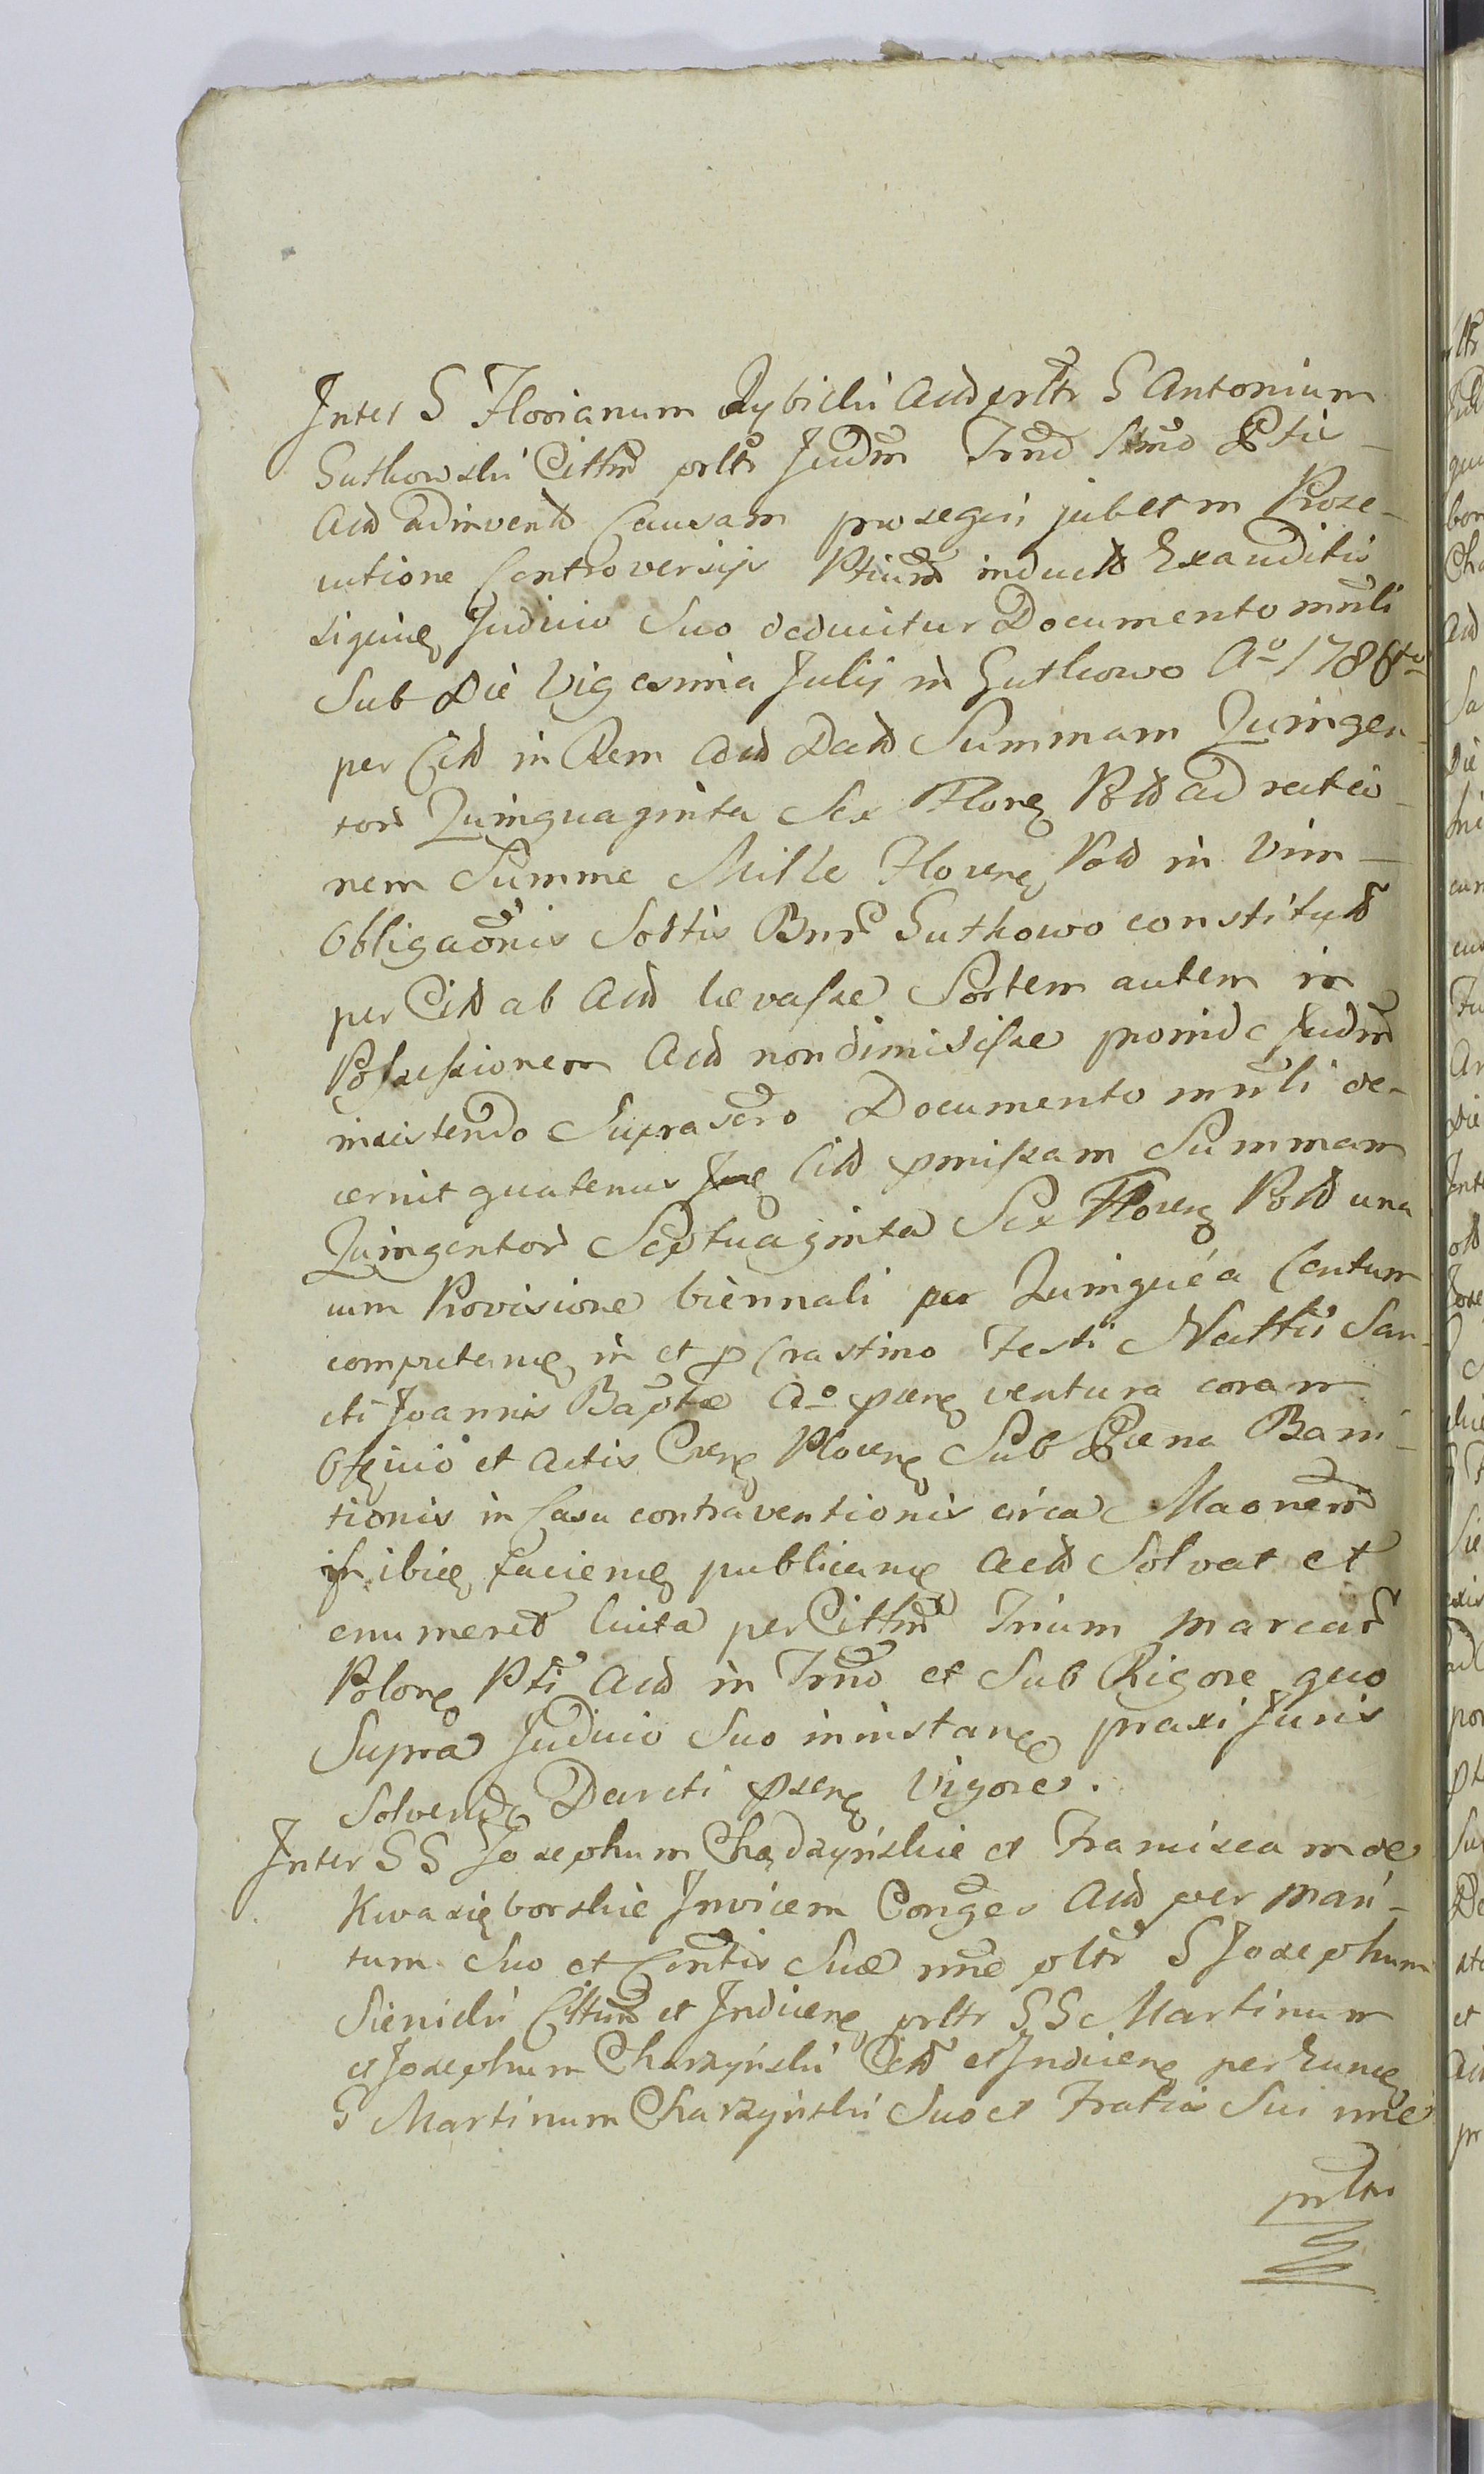 Inter S Florianum Rybicki Actd prltr S Antonium
Gutkowski Cittm prltr Judm Trnd Stmo Ptis
Actd adinvend Causam prosequi jubet in Prose-
cutione Controversijs Ptium induct Exauditis
siquid Judicio Suo deducitur Documento mnli
Sub Die Vigesima Julij in Gutkowo Ao 1786to
per Citd in Rem Actd Datd Summam Quingen-
tor Quinquaginta Sex Floren Pold ad ratio-
nem Summe Mille Floren Pold in Vim
Obligaonis Sortis Bnr Gutkowo constitutd
per Citd ab Actd levasse Sortem autem in
Possessionem Actd non dimisisse proinde Judm
insistendo Suprascro Documento mnli de-
cernit quatenus Citd pmissam Summam
Quingentor Septuaginta Sex Floren Pold una
cum Provisione biennali per Quinque a Centum
computan in et p Crastino Festi Nattis San-
cti Joannis Baptae Ao prn ventura coram
Officio et Actis Cren Plocen Sub Poena Bani-
tionis in Casu contraventionis circa Maonem
ibid faciend publicand Actd Solvat et
enumeret luita per Cittm Trium marcar
Polon Pti Actd in Trnd et Sub Rigore quo
Supra Judicio Suo ininstan praxi Juris
Solvend Dareti psen Vigore.
Inter SS Josephum Chądzyńskie et Franciscam de
Kwasięborskie Invicem Conges Actd per mari-
tum Suo et Contis Suae nne pltr S Josephum
Sienicki Cittm et Inducen prltr SS Martinum
et Josephum Charzyński Citd et Inducen per Eund
S Martinum Charzyński Suo et Fratis Sui nne
prltr